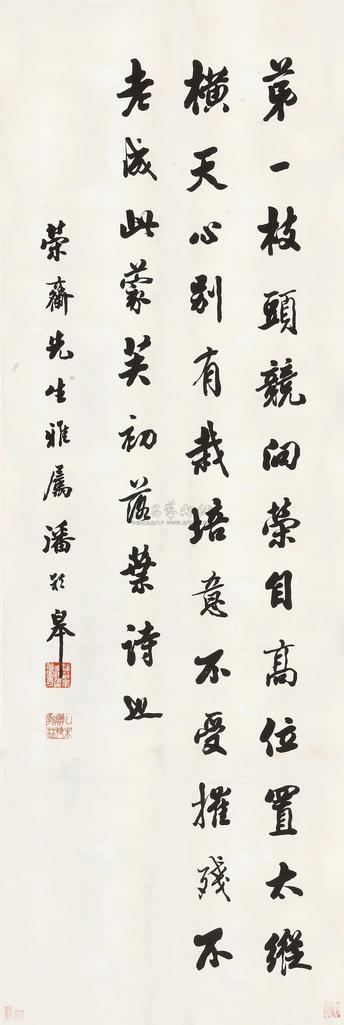 第一枝頭競向榮自高位置太縱
橫天心別有栽培意不受摧殘不
老成此蒙芙初落葉詩也
榮齋先生雅属潘齡皋